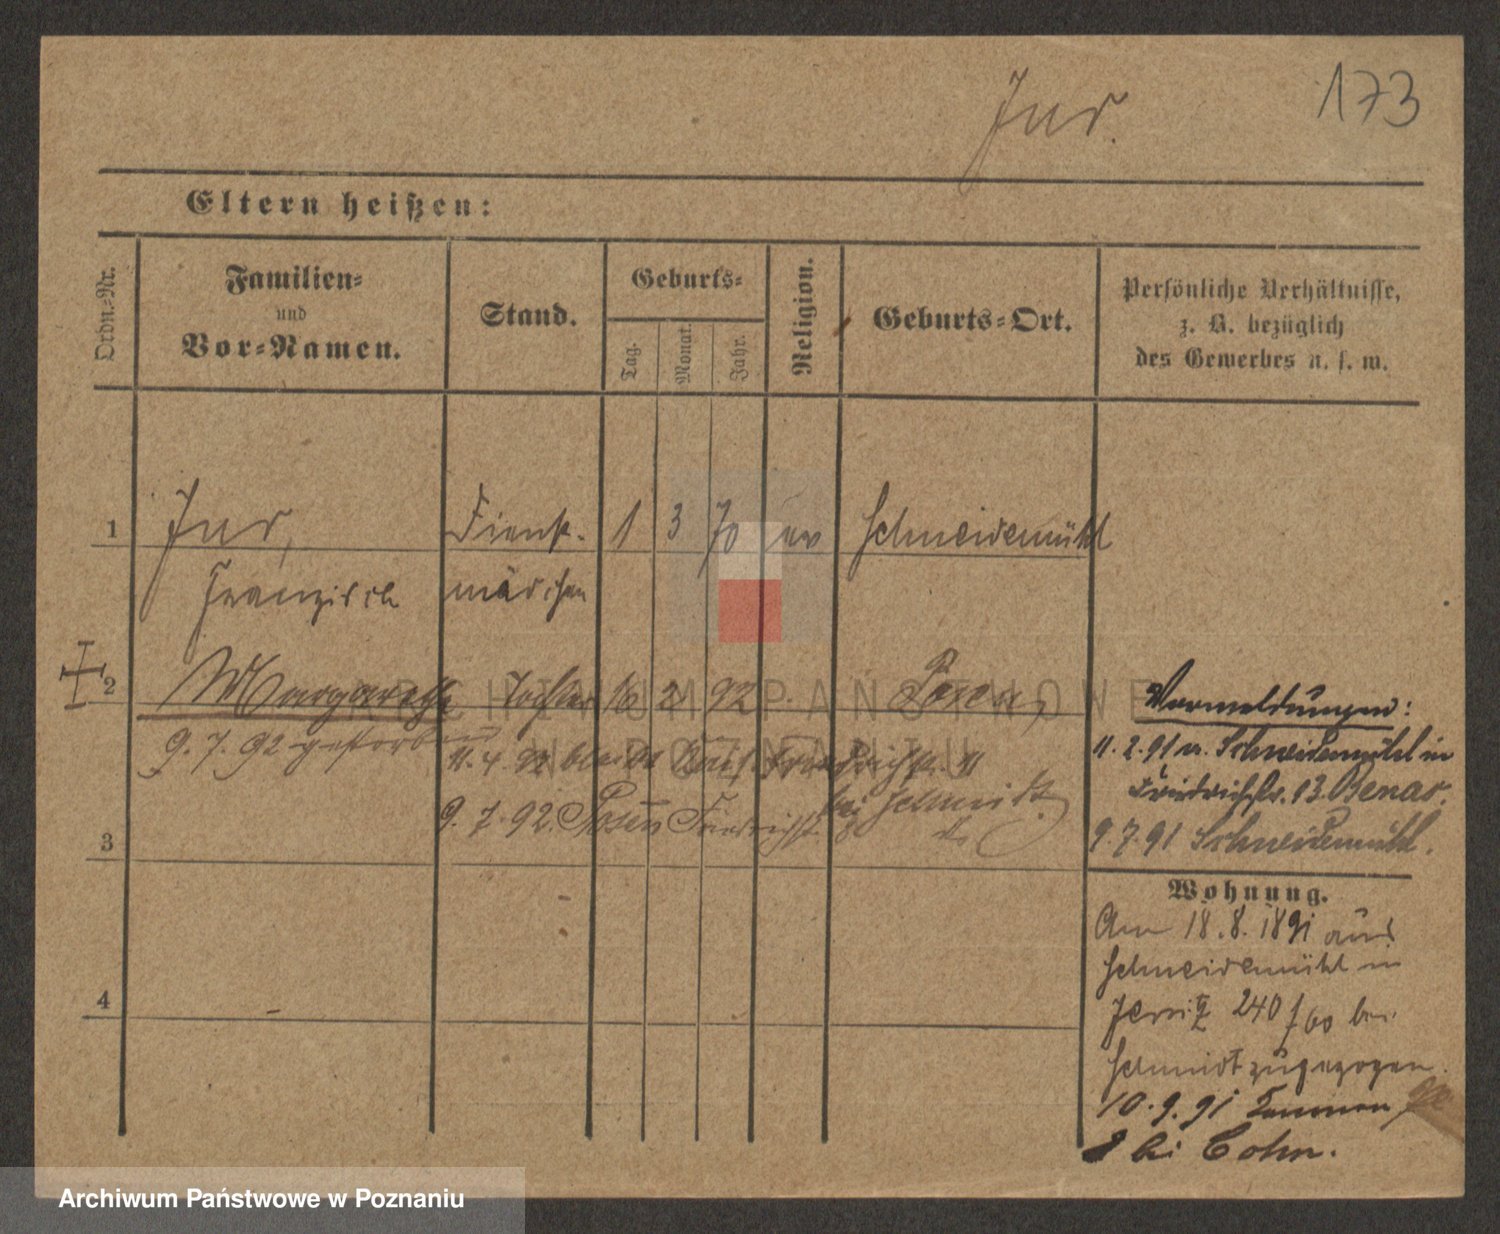 173
Jur.
Eltern heißen:
Ordn.-Nr.
Familien-
und
Vor-Namen.
Stand.
Geburts-
Tag.
Monat.
Jahr.
Religion.
Geburts-Ort.
Persönliche Verhältnisse,
z. B. bezüglich
des Gewerbes u. s. w.
1 Jur, Dienst- 1 3 70 ev Schneidemühl
mädchen
2 Margarethe Tochter 16 2 92 Posen
9. 7. 92 gestorben
11. 4. 92 Friedrichstr. 11
bei Schmidt
9. 7. 92. Posen Friedrichst. 8
3
4
Vormeldungen:
11. 2. 91 v. Schneidemühl in
Friedrichstr. 13
9. 7. 91 Schneidemühl.
Wohnung.
Am 18. 8. 1891 aus
Schneidemühl in
Jersitz 240 f 60 bei
Schmidt zugezogen.
10. 9. 91
8 bei Cohn.
ARCHIWUM PAŃSTWOWE
W POZNANIU
Archiwum Państwowe w Poznaniu